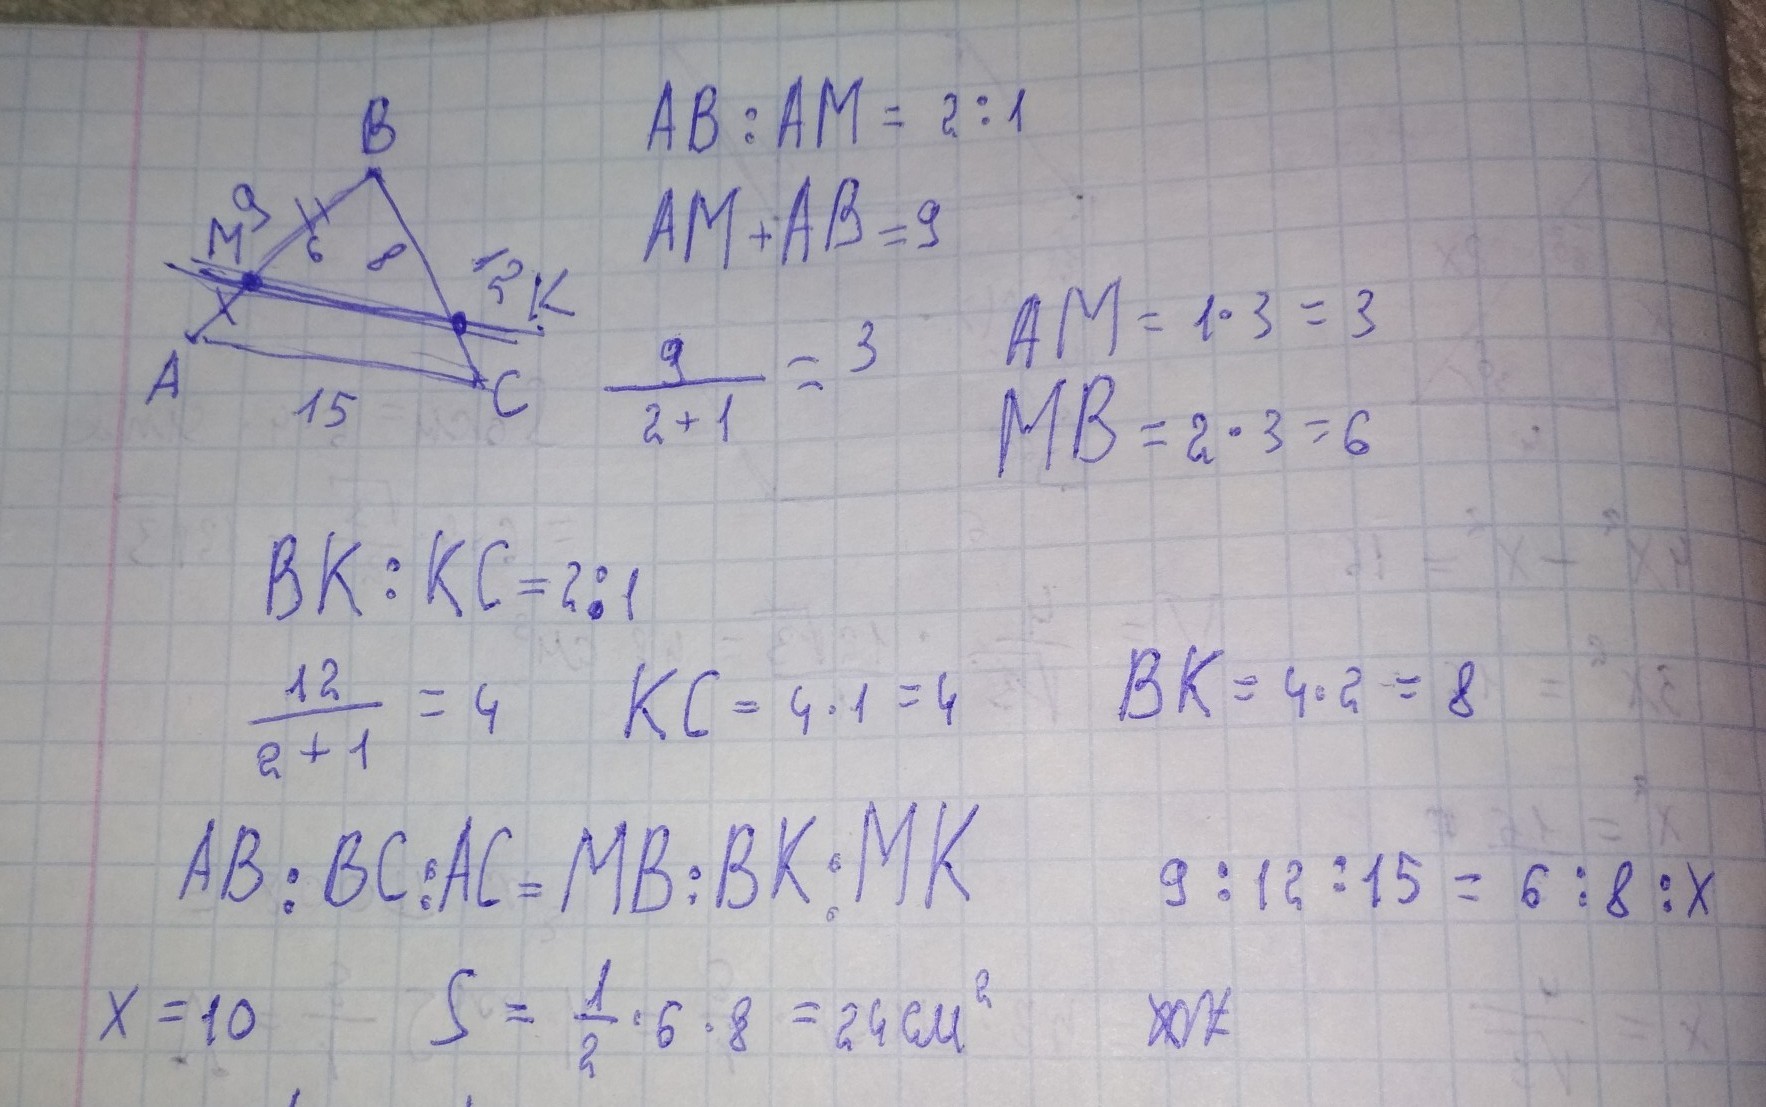 AB : AM = 2 : 1
AM + AB = 9
B
9
M
6
8
12
K
A
15
C
9/(2+1) = 3
AM = 1·3 = 3
MB = 2·3 = 6
BK : KC = 2 : 1
12/(2+1) = 4 KC = 4·1 = 4 BK = 4·2 = 8
AB : BC : AC = MB : BK : MK 9 : 12 : 15 = 6 : 8 : x
x = 10 S = 1/2 · 6 · 8 = 24 см²